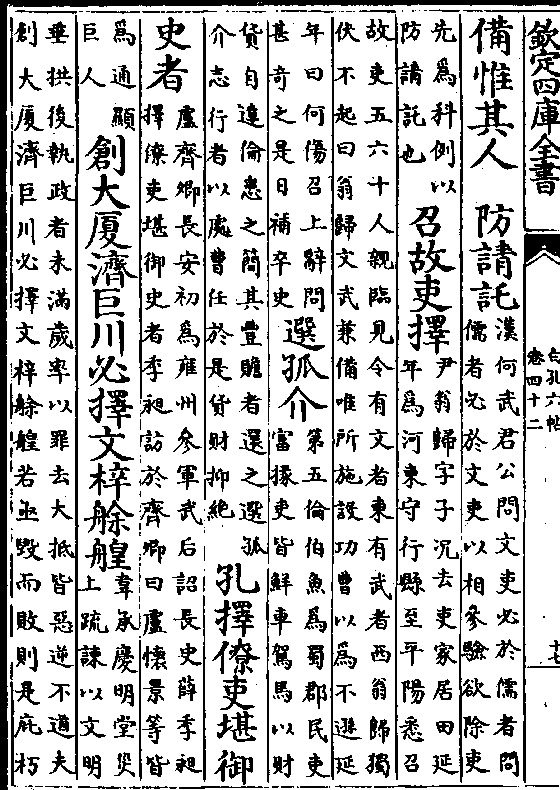 欽定四庫全書
白孔六帖
卷四十二
備惟其人　防請託　漢何武君公問文吏必於儒者問
儒者必於文吏以相參驗欲除吏
先為科例以
防請託也
召故吏擇　尹翁歸字子況去吏家居田延
年為河東守行縣至平陽悉召
故吏五六十人親臨見令有文者東有武者西翁歸獨
伏不起曰翁歸文武兼備唯所施設功曹以為不遜延
年曰何傷召上辭問
甚奇之是日補卒史
選孤介　第五倫伯魚為蜀郡民吏
富掾吏皆鮮車駕馬以財
貨自達倫悉之簡其豐贍者還之選孤
介志行者以處曹任於是貨財抑絶
孔擇僚吏堪御
史者　盧齊卿長安初為雍州參軍武后詔長史薛季昶
擇僚吏堪御史者季昶訪於齊卿曰盧懷景等皆
為通顯
巨人
創大厦濟巨川必擇文梓艅艎　韋承慶明堂災
上疏諫以文明
垂拱後執政者未滿歲率以罪去大抵皆惡逆不道夫
創大厦濟巨川必擇文梓艅艎若亟毀而敗則是庇朽